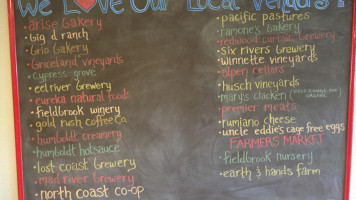 We L❤ve Our Local Vendors!
• arise bakery
• big d ranch
• Grio Bakery
• Graceland vineyards
• cypress grove
• eel river Brewery
• eureka natural foods
• fieldbrook winery
• gold rush coffee co.
• humboldt creamery
• humboldt hotsauce
• lost coast Brewery
• mad river Brewery
• north coast co-op
• pacific pastures
• ramone's bakery
• redwood curtain Brewery
• six rivers Brewery
• winnette vineyards
• alpen cellars
• husch vineyards
• mary's chicken
• premier meats
• rumiano cheese
• uncle eddie's cage free eggs
FARMERS MARKET
• fieldbrook nursery
• earth & hands farm